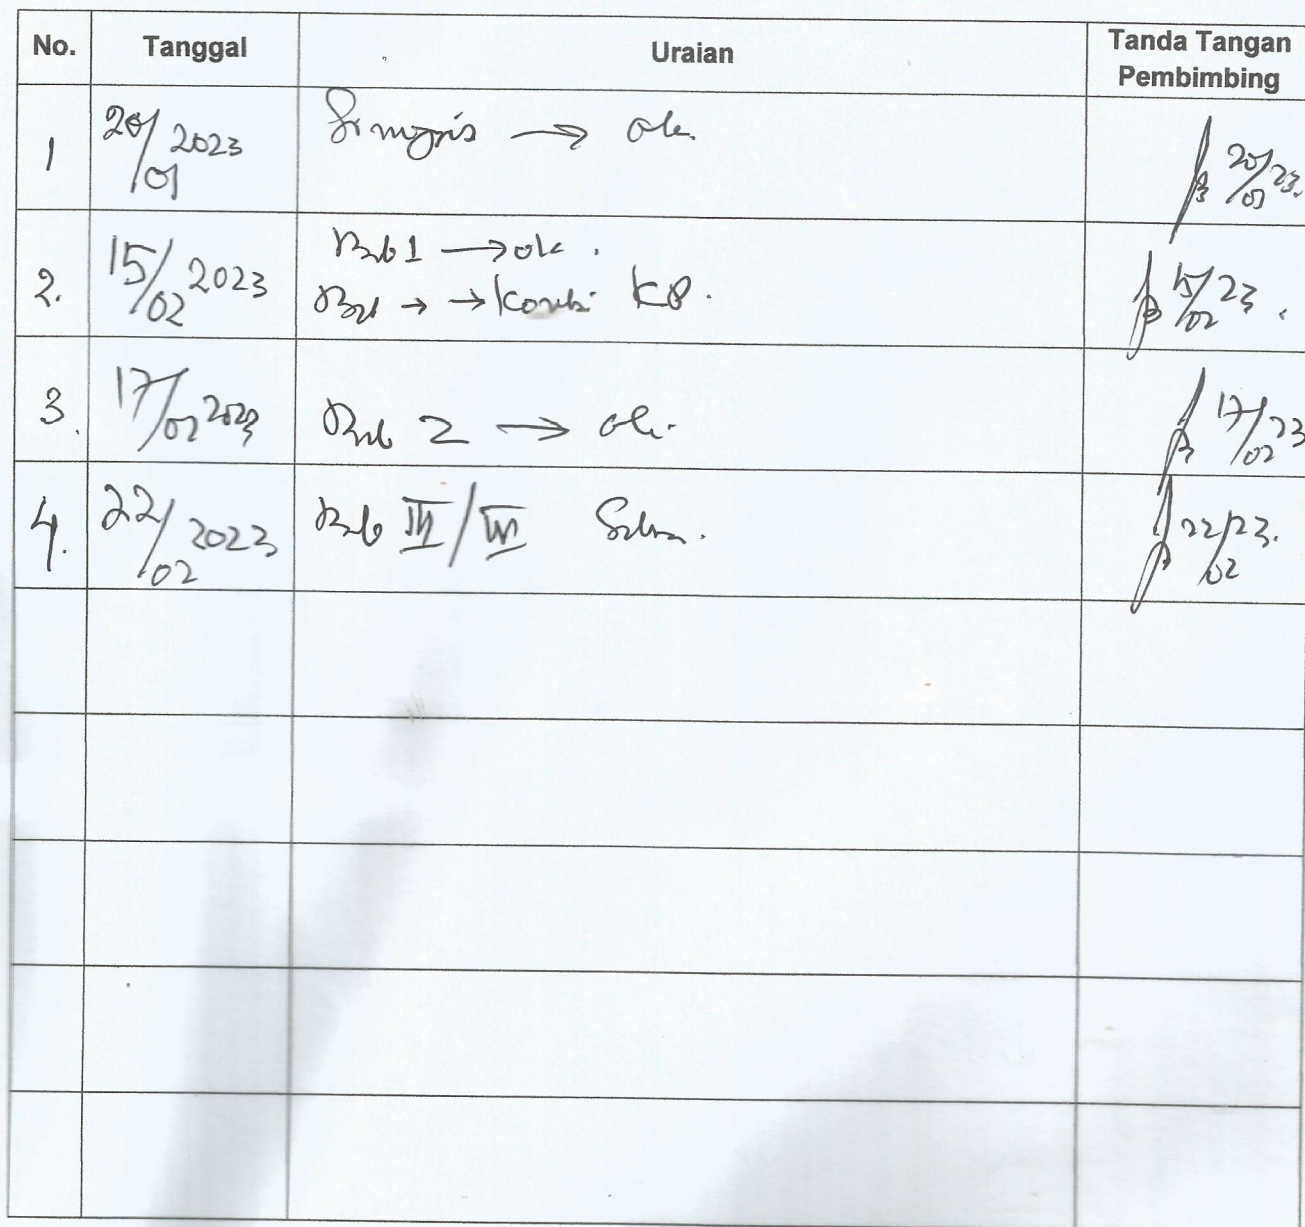 No. Tanggal Uraian Tanda Tangan
Pembimbing
1 20/01 2023 → ok. 20/01 23.
2. 15/02 2023 Bab 1 → ok. 15/02 23.
Bab → → KP.
3. 17/02 2023 Bab 2 → ok. 17/02 23
4. 22/02 2023 Bab III/ 22/02 23.